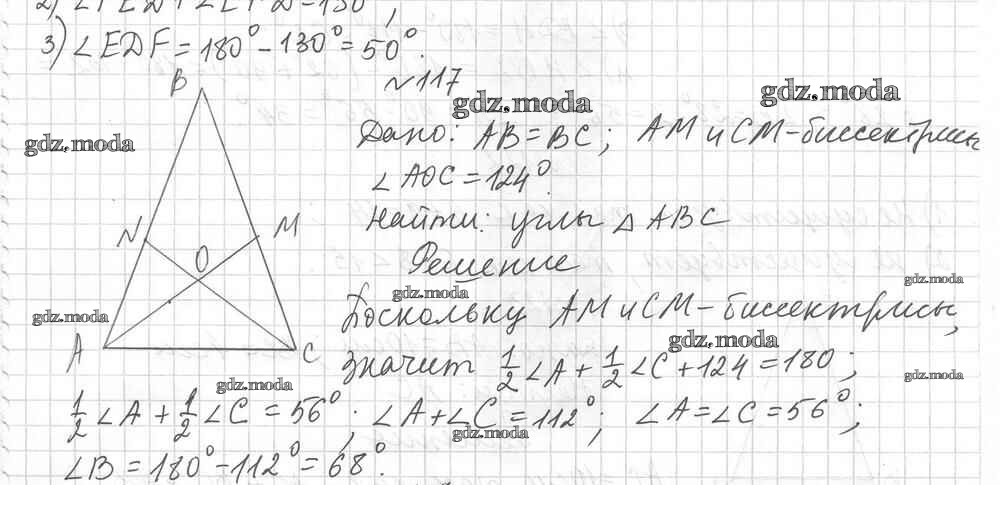 2) ∠FED+∠EFD=130°;
3) ∠EDF = 180° - 130° = 50°.
№117
B
gdz.moda
gdz.moda
Дано: AB = BC; AM и CM - биссектрисы
gdz.moda
∠AOC = 124°.
N
M
Найти: углы △ABC
O
Решение
gdz.moda
gdz.moda
gdz.moda
Поскольку AM и CM - биссектрисы,
A
C
gdz.moda
значит 1/2 ∠A + 1/2 ∠C + 124 = 180;
gdz.moda
gdz.moda
1/2 ∠A + 1/2 ∠C = 56°; ∠A + ∠C = 112°; ∠A = ∠C = 56°;
gdz.moda
∠B = 180° - 112° = 68°.